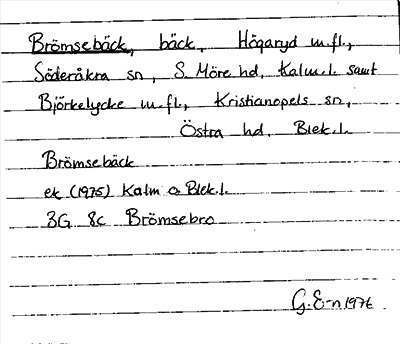 Brömsebäck, bäck, Högaryd m.fl.,
Söderåkra sn, S. Möre hd, Kalm.l. samt
Björkelycke m.fl., Kristianopels sn,
Östra hd, Blek.l.
Brömsebäck
ek (1975) Kalm o Blek.l.
3G 8c Brömsebro
G. E-n 1976